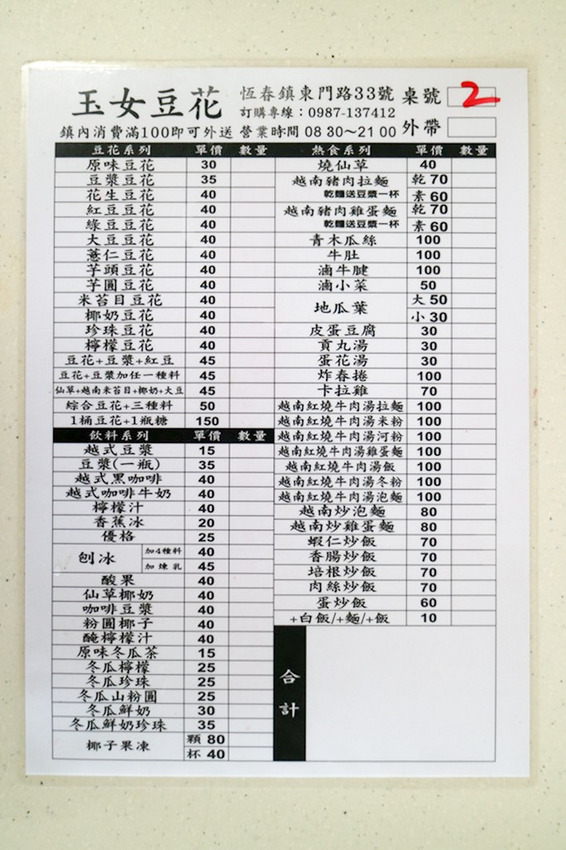 玉女豆花 恆春鎮東門路33號 桌號 2
訂購專線：0987-137412
鎮內消費滿100即可外送 營業時間 08 30～21 00 外帶
豆花系列 單價 數量
原味豆花 30
豆漿豆花 35
花生豆花 40
紅豆豆花 40
綠豆豆花 40
大豆豆花 40
薏仁豆花 40
芋頭豆花 40
芋圓豆花 40
米苔目豆花 40
椰奶豆花 40
珍珠豆花 40
檸檬豆花 40
豆花+豆漿+紅豆 45
豆花+豆漿加任一種料 45
仙草+越南米苔目+椰奶+大豆 45
綜合豆花+三種料 50
1桶豆花+1瓶糖 150
飲料系列 單價 數量
越式豆漿 15
豆漿(一瓶) 35
越式黑咖啡 40
越式咖啡牛奶 40
檸檬汁 40
香蕉冰 20
優格 25
刨冰 加4種料 40
加煉乳 45
酸果 40
仙草椰奶 40
咖啡豆漿 40
粉圓椰子 40
醃檸檬汁 40
原味冬瓜茶 15
冬瓜檸檬 25
冬瓜珍珠 25
冬瓜山粉圓 25
冬瓜鮮奶 30
冬瓜鮮奶珍珠 35
椰子果凍 顆 80
杯 40
熱食系列 單價 數量
燒仙草 40
越南豬肉拉麵 乾 70
乾麵送豆漿一杯 素 60
越南豬肉雞蛋麵 乾 70
乾麵送豆漿一杯 素 60
青木瓜絲 100
牛肚 100
滷牛腱 100
滷小菜 50
地瓜葉 大 50
小 30
皮蛋豆腐 30
貢丸湯 30
蛋花湯 30
炸春捲 100
卡拉雞 70
越南紅燒牛肉湯拉麵 100
越南紅燒牛肉湯米粉 100
越南紅燒牛肉湯河粉 100
越南紅燒牛肉湯雞蛋麵 100
越南紅燒牛肉湯飯 100
越南紅燒牛肉湯冬粉 100
越南紅燒牛肉湯泡麵 100
越南炒泡麵 80
越南炒雞蛋麵 80
蝦仁炒飯 70
香腸炒飯 70
培根炒飯 70
肉絲炒飯 70
蛋炒飯 60
+白飯/+麵/+飯 10
合計